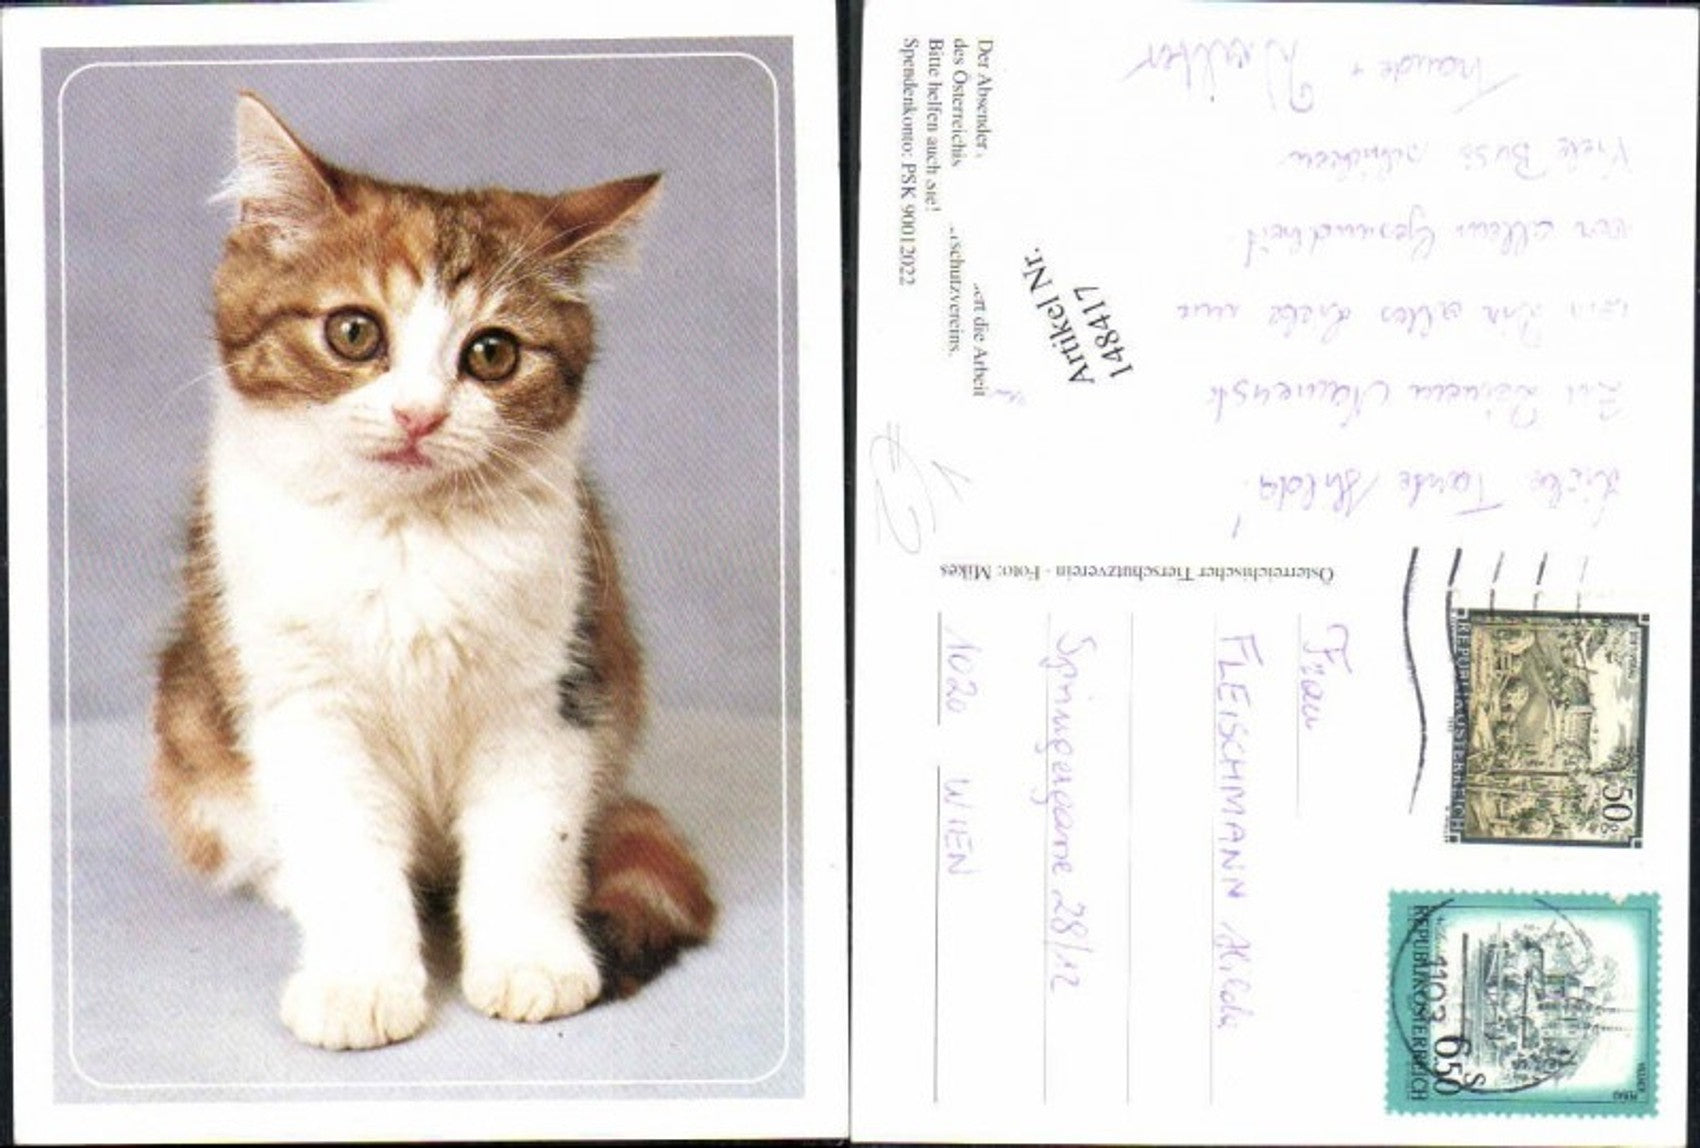 Liebe Tante Hilda!
Zu Deinem Namenst
alles Liebe und
vor allem Gesundheit
Viele Bussi schicken
Traude +
Der Absender
ert die Arbeit
des Österreichis
rschutzvereins.
Bitte helfen auch Sie!
Spendenkonto: PSK 90012022
Artikel Nr.
148417
Österreichischer Tierschutzverein - Foto: Mikes
Frau
FLEISCHMANN Hilda
Springergasse 28/12
1020 WIEN
REPUBLIK ÖSTERREICH
50g
REPUBLIK ÖSTERREICH
S 6.50